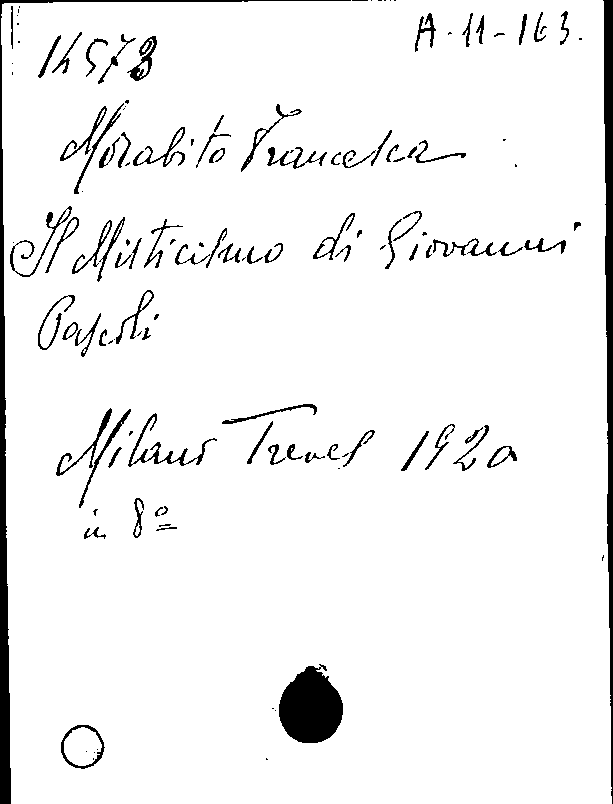 14573
A-11-163.
Morabito Francesca
Il Misticismo di Giovanni
Pascoli
Milano Treves 1920
in 8º